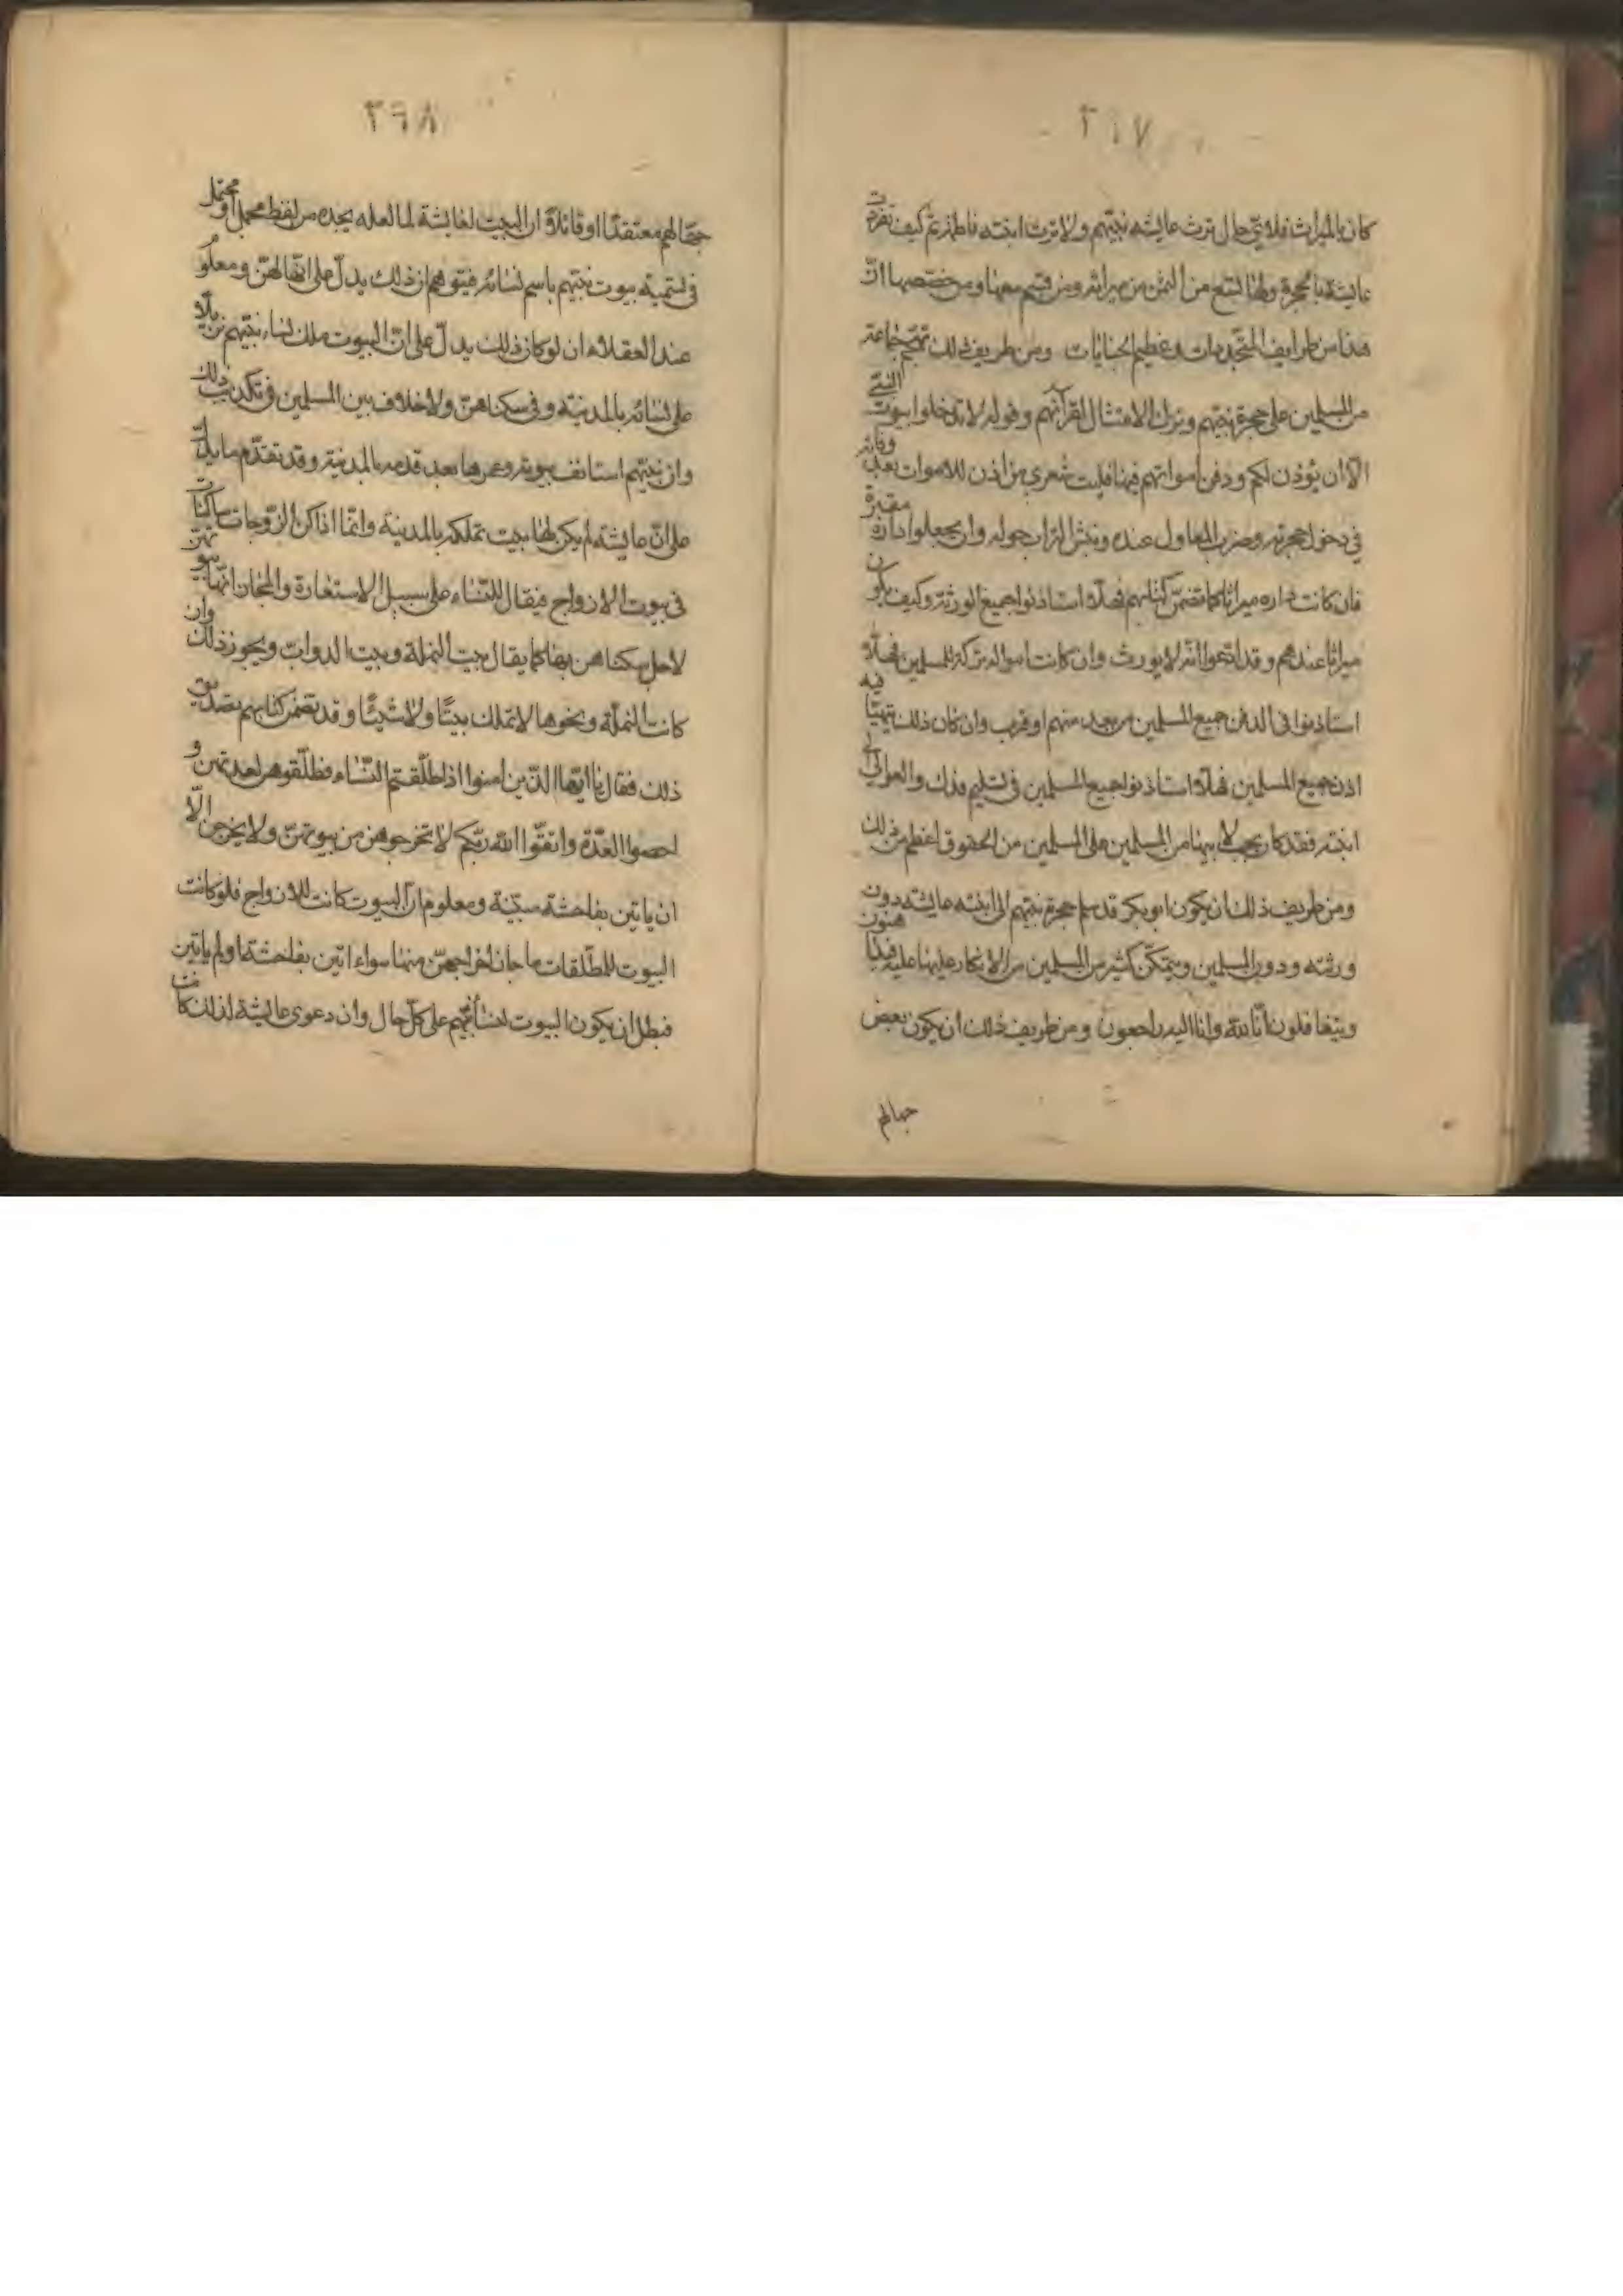 ٢٦٧
كان بالميراث فلاي حال ترث عايشه نبيهم ولا ترث ابنته فاطمة ثم كيف تفردت
عايشة بالحجرة ولها التسع من الثمن من ميراثه ومن قسم معها ومن خصصها ان
هذا من طرايف المتجددات وعظيم الجنايات ومن طريف ذلك تهجم جماعة
من المسلمين على حجرة نبيهم وترك الامتثال لقرآنهم وقوله لا تدخلوا بيوت النبي
الا ان يؤذن لكم ودفن امواتهم فيها فليت شعري من اذن للاموات بعد وفاته
في دخول حجرته وضرب المعاول عنده ونبش التراب حوله وان يجعلوا داره مقبرة
فان كانت داره ميراثا كما تضمن كتابهم فهلا استاذنوا جميع الورثة وكيف يكون
ميراثا عندهم وقد ادعوا انه لا يورث وان كانت امواله تركة للمسلمين فهلا
استاذنوا في الدفن جميع المسلمين من بعد منهم او قرب وان كان ذلك يتهيا فيه
اذن جميع المسلمين فهلا استاذنوا جميع المسلمين في تسليم فدك والعوالي الى
ابنته فقد كان يجب لابيها من المسلمين على المسلمين من الحقوق اعظم من ذلك
ومن طريف ذلك ان يكون ابو بكر قد سلم حجرة نبيهم الى ابنته عايشه دون
ورثته ودون المسلمين ويتمكن كثير من المسلمين من الانكار عليها عليه فيداهنون
ويتغافلون انا لله وانا اليه راجعون ومن طريف ذلك ان يكون بعض
جهالهم
٢٦٨
جهالهم معتقدا او قائلا ان البيت لعايشة لما لعله يجده من لفظ مجمل او محتمل
في تسمية بيوت نبيهم باسم نسائه فيتوهم ان ذلك يدل على انها لهن ومعلوم
عند العقلاء ان لو كان ذلك يدل على ان البيوت ملك لنساء نبيهم
على نسائه بالمدينة وفي سكناهن ولا خلاف بين المسلمين في تكذيب ذلك
وان نبيهم استانف بيوته وعمرها بعد قدمه بالمدينة وقد تقدم ما يدل
على ان عايشه لم يكن لها بيت تملكه بالمدينة وانما اذا كن الزوجات ساكنات
في بيوت الازواج فيقال للنساء على سبيل الاستعارة والمجاز انها بيوتهن
لاجل سكناهن بها كما يقال بيت النملة وبيت الدواب ويجوز ذلك وان
كانت النملة ونحوها لا تملك بيتا ولا شيئا وقد تضمن كتابهم تصديق
ذلك فقال يا ايها الذين امنوا اذا طلقتم النساء فطلقوهن لعدتهن و
احصوا العدة واتقوا الله ربكم لا تخرجوهن من بيوتهن ولا يخرجن الا
ان ياتين بفاحشة مبينة ومعلوم ان البيوت كانت للازواج فلو كانت
البيوت للمطلقات ما جاز اخراجهن منها سواء اتين بفاحشة او لم ياتين
فبطل ان يكون البيوت لنسائهم على كل حال وان دعوى عايشة لذلك كانت